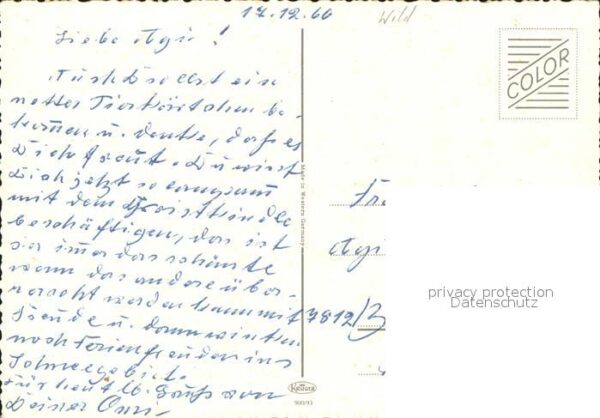 17.12.66
Wild
Liebe Agi!
Auch Du sollst ein
nettes Tierkärtchen be-
kommen u. denke, daß es
Dich freut. Du wirst
Dich jetzt so langsam
mit dem Christkindle
beschäftigen, das ist
ja immer das schönste
wenn das andere über-
rascht werden kann mit
Freude u. dann winken
noch Ferienfreuden ins
Schneegebiet.
Für heut lb. Gruß von
Deiner Omi.
COLOR
Made in Western Germany
Fr.
Agi
7812/
privacy protection
Datenschutz
Krüger
900/93